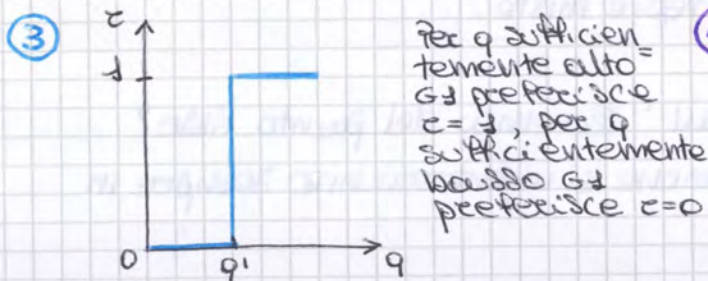 3
τ
1
0
q'
q
Per q sufficien=
temente alto
G1 preferisce
τ=1, per q
sufficientemente
basso G1
preferisce τ=0